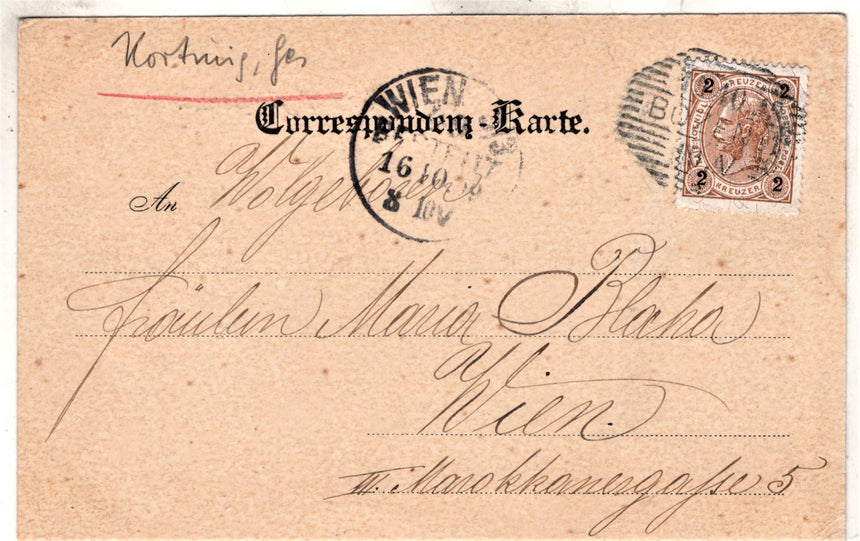 Correspondenz-Karte.
WIEN
BESTELLT
16 10
An Wolgeboren
Fräulein Maria Blaha
Wien
III. Marokkanergasse 5
2 KREUZER 2
2 KREUZER 2